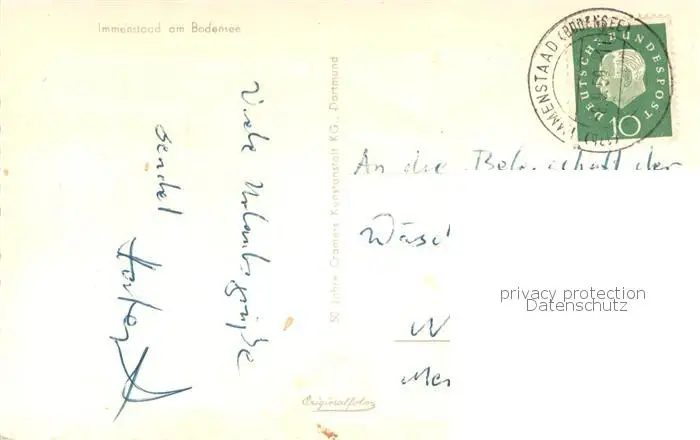 Immenstaad am Bodensee
Viele Urlaubsgrüße
sendet
50 Jahre Cramers Kunstanstalt KG., Dortmund
IMMENSTAAD (BODENSEE)
DEUTSCHE BUNDESPOST
10
An die Belegschaft der
privacy protection
Datenschutz
Originalfoto